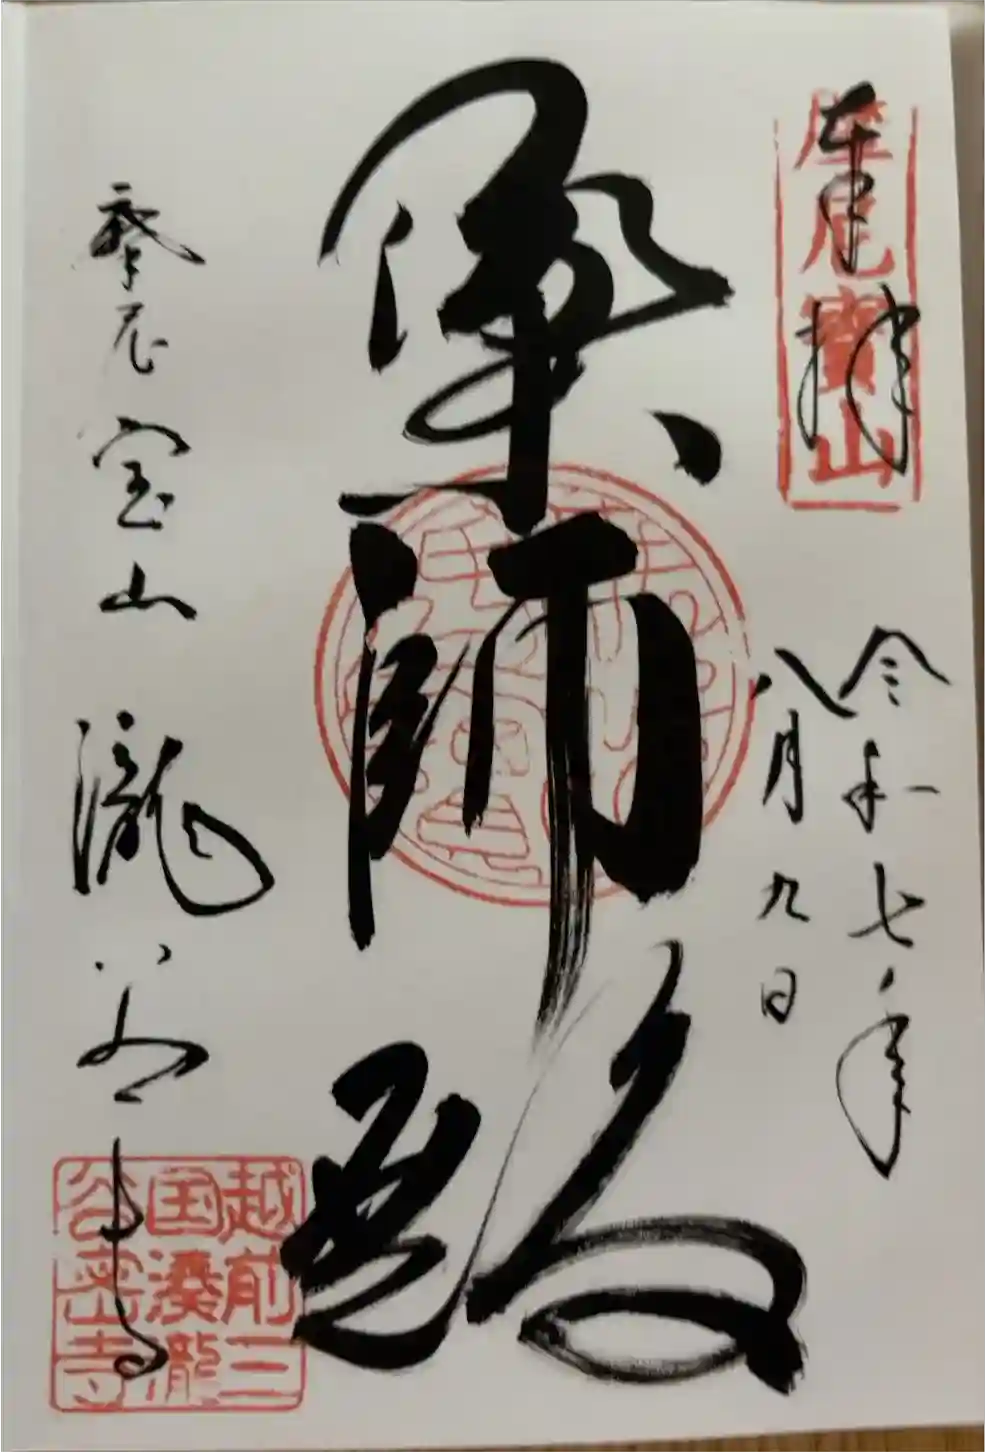 奉拝
摩尼寶山
令和七年
八月九日
薬師殿
摩尼宝山 瀧谷寺
越前三
国湊瀧
谷密寺